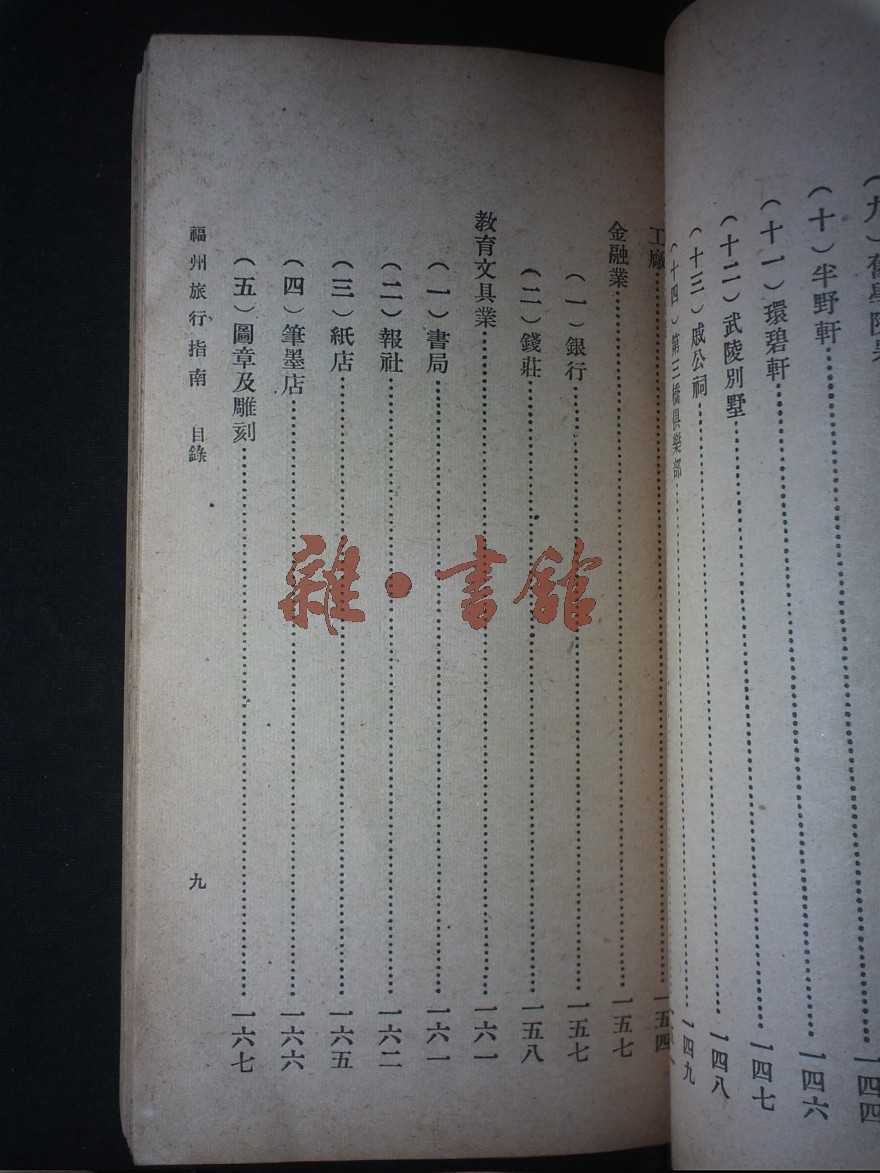 （十）半野軒……一四六
（十一）環碧軒……一四七
（十二）武陵別墅……一四八
（十三）戚公祠……一四九
（十四）第三橋俱樂部……
工廠……一五四
金融業……一五七
（一）銀行……一五七
（二）錢莊……一五八
教育文具業……一六一
（一）書局……一六一
（二）報社……一六二
（三）紙店……一六五
（四）筆墨店……一六六
（五）圖章及雕刻……一六七
福州旅行指南　目錄
九
雜・書館